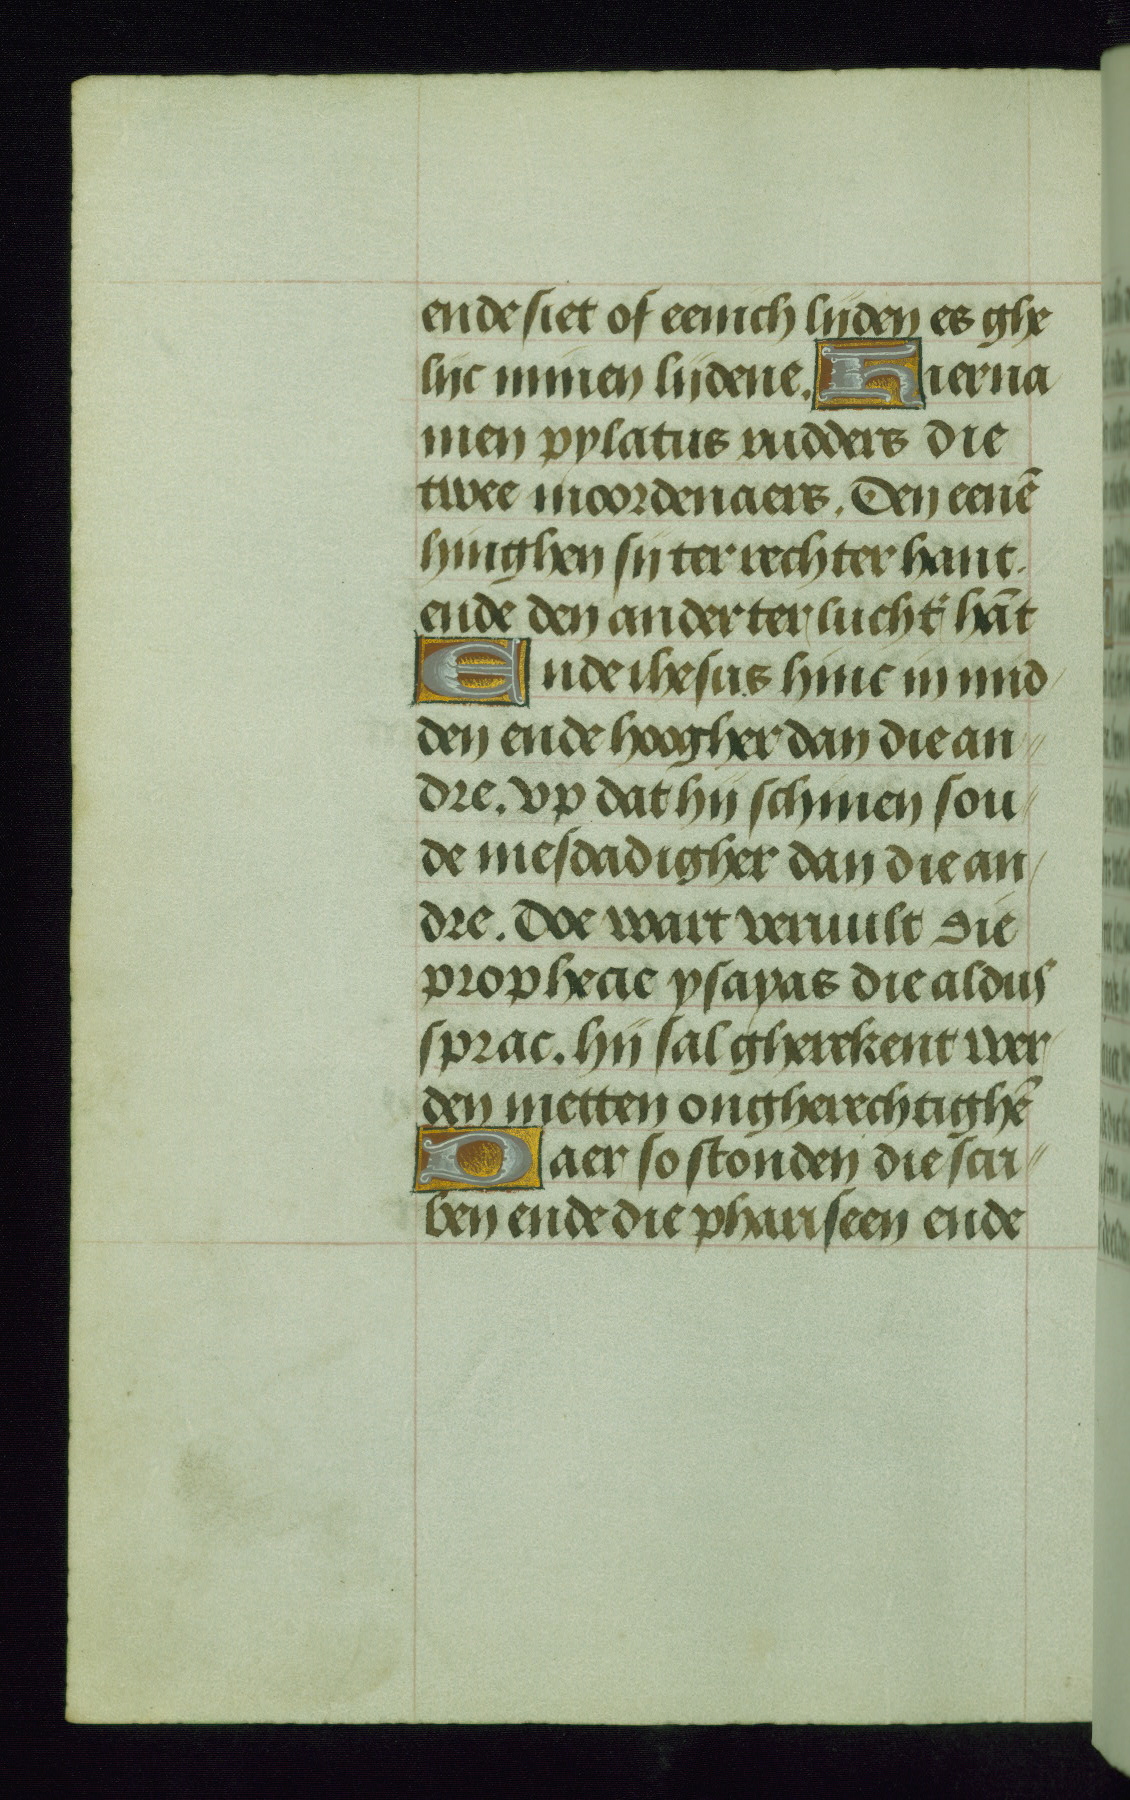 ende siet of eenich lijden es ghe
lijc minen lijdene. Hierna
men pylatus rudders die
twee moordenaers. Den eenē
hinghen sij ter rechter hant.
ende den ander ter luchtr̄ hāt
Ende ihesus hinc in mid
den ende hoogher dan die an
dre. vp dat hij schinen sou
de mesdadigher dan die an
dre. Doe wart veruult die
prophecie ysayas die aldus
sprac. hij sal gherekent wer
den metten ongherechtighē
Daer so stonden die scri
ben ende die phariseen ende